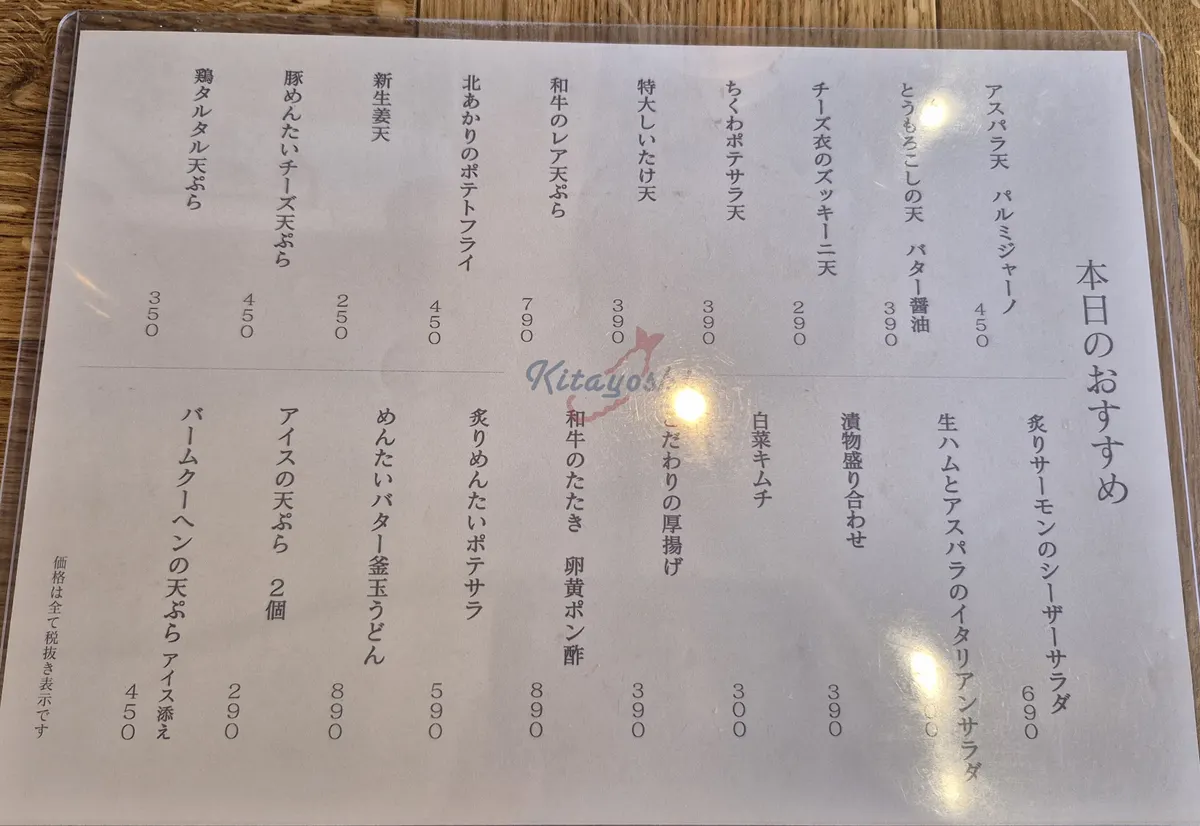 本日のおすすめ
アスパラ天 パルミジャーノ
450
とうもろこしの天 バター醤油
390
チーズ衣のズッキーニ天
290
ちくわポテサラ天
390
特大しいたけ天
390
和牛のレア天ぷら
790
北あかりのポテトフライ
450
新生姜天
250
豚めんたいチーズ天ぷら
450
鶏タルタル天ぷら
350
Kitayoshi
炙りサーモンのシーザーサラダ
690
生ハムとアスパラのイタリアンサラダ
漬物盛り合わせ
390
白菜キムチ
300
こだわりの厚揚げ
390
和牛のたたき 卵黄ポン酢
890
炙りめんたいポテサラ
590
めんたいバター釜玉うどん
890
アイスの天ぷら 2個
290
バームクーヘンの天ぷら アイス添え
450
価格は全て税抜き表示です